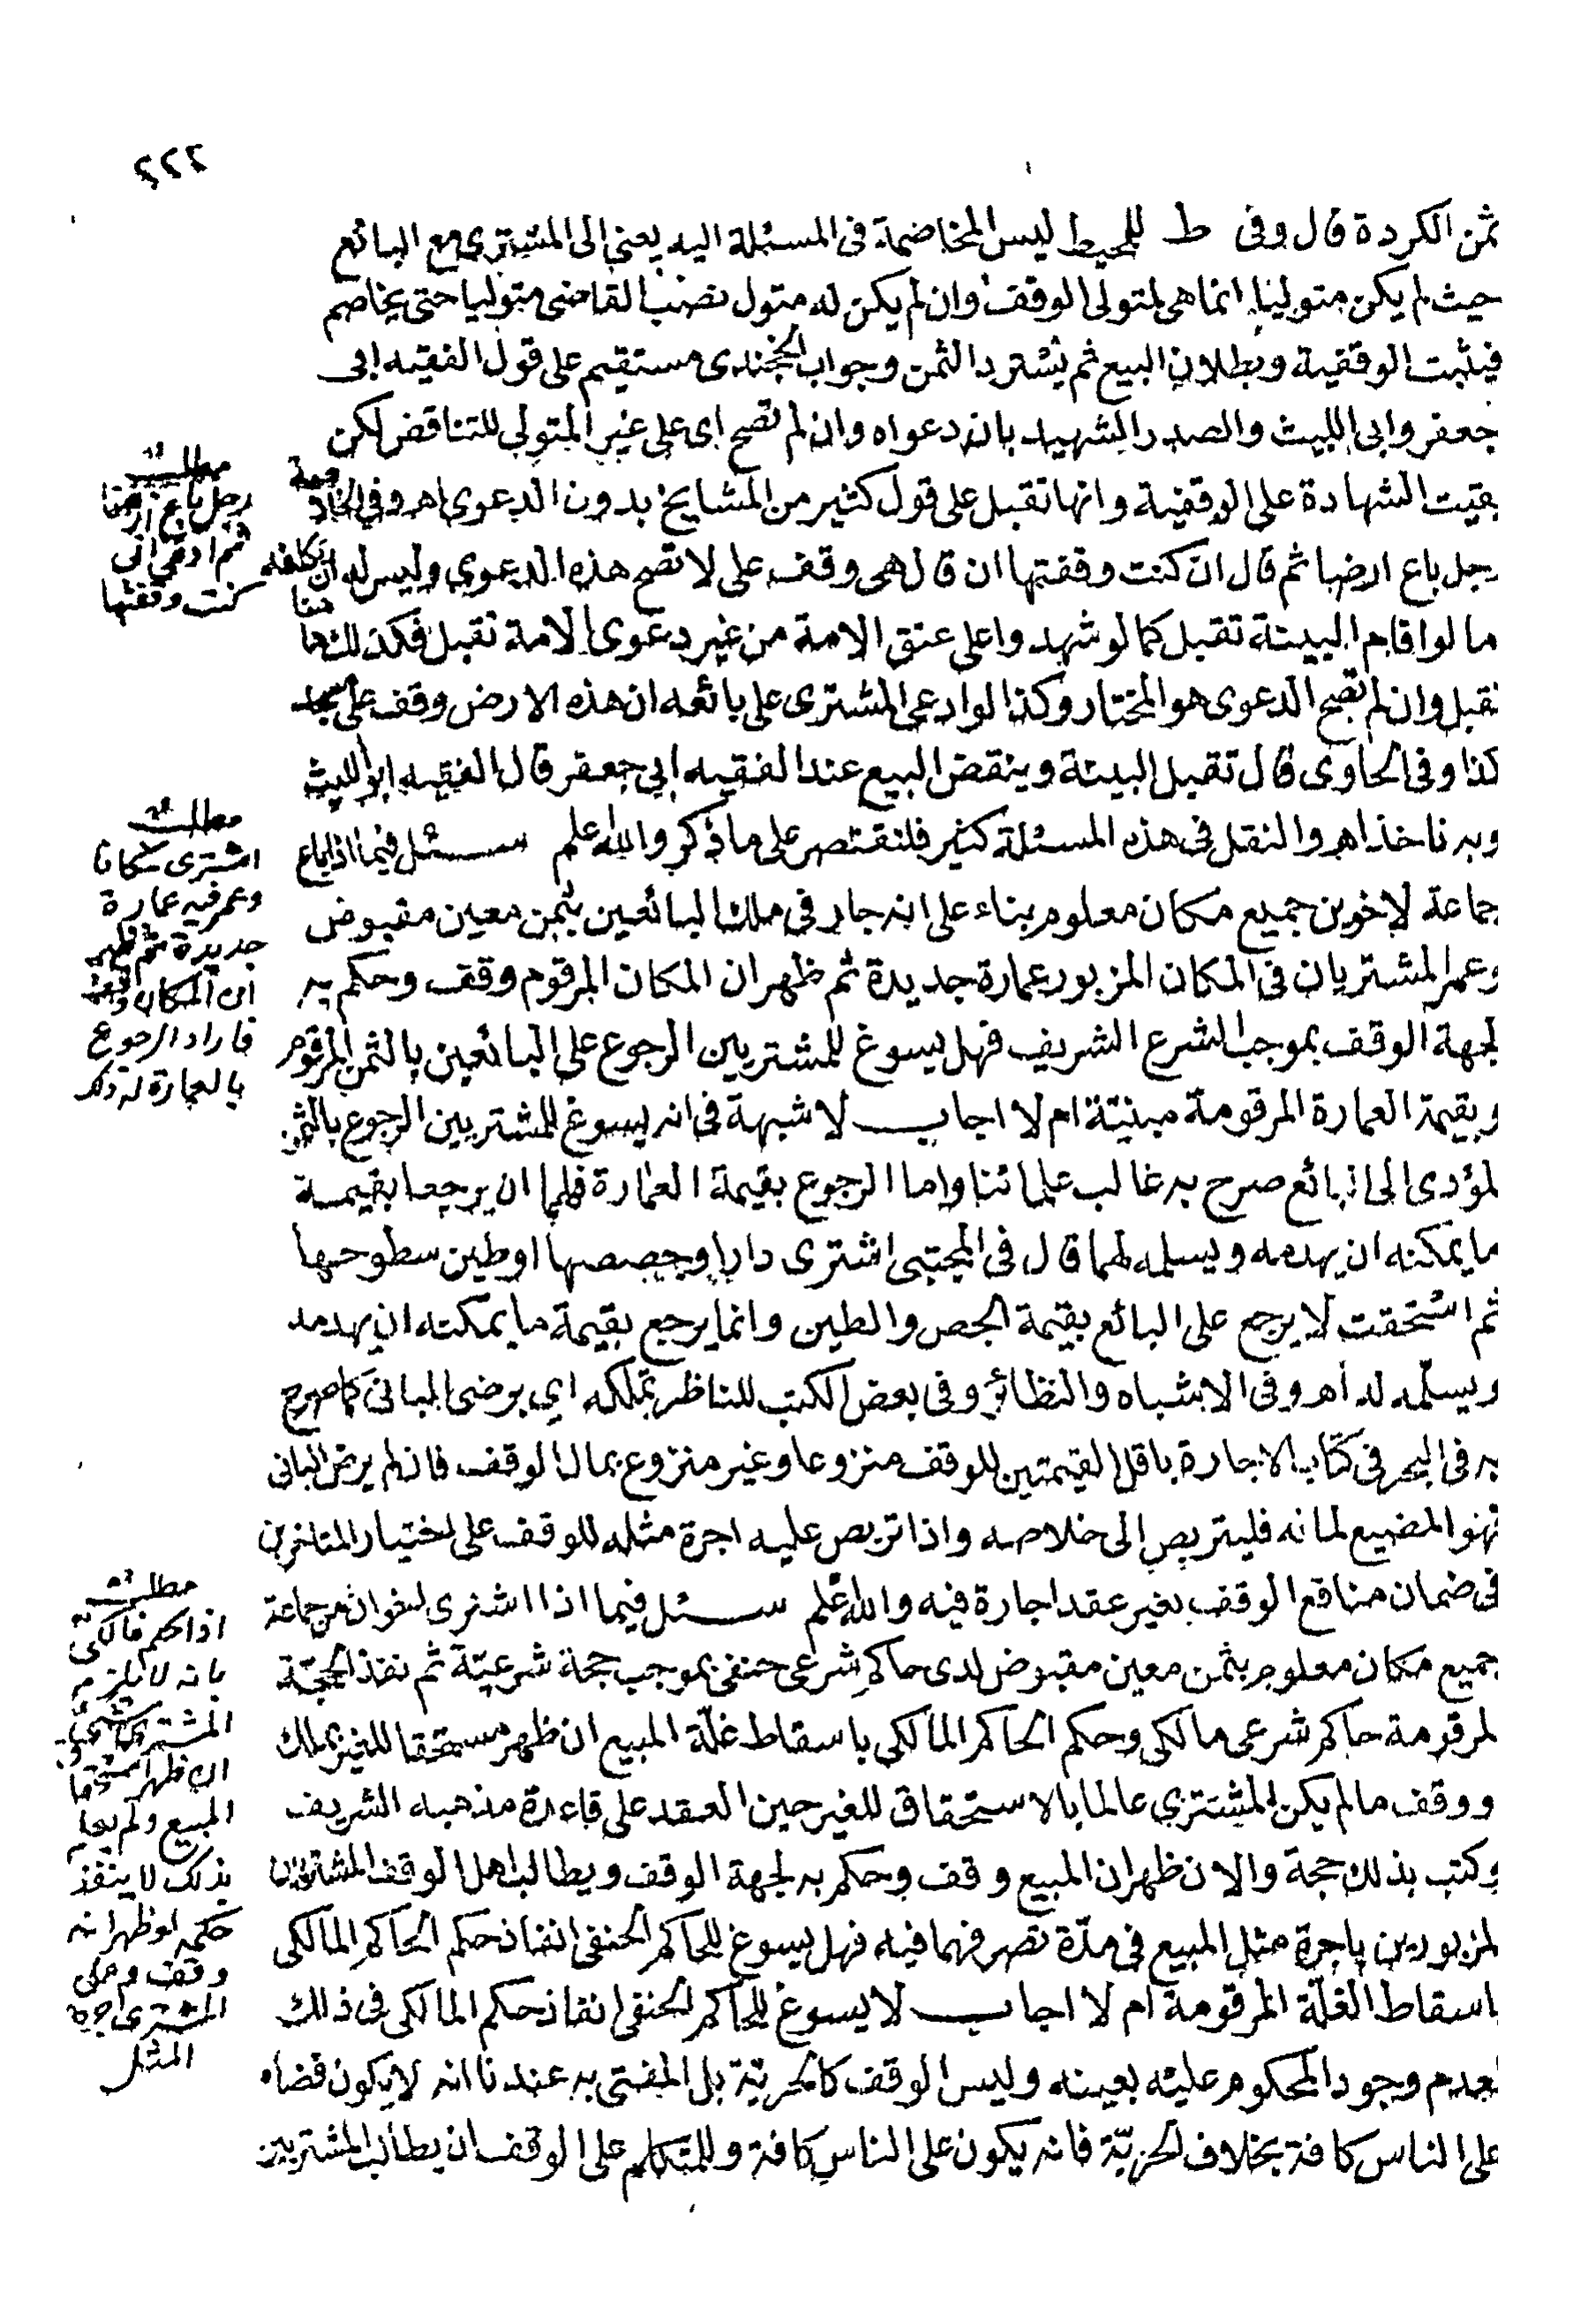 ٢٢٢
ثمن الكردة قال وفى ط للمحيط ليس المخاصمة فى المسئلة اليه يعنى الى المشترى مع البائع
حيث لم يكن متوليا انما هى لمتولى الوقف وان لم يكن له متول نصب القاضى متوليا حتى يخاصم
فيثبت الوقفية وبطلان البيع ثم يسترد الثمن وجواب الخجندى مستقيم على قول الفقيه ابى
جعفر وابى الليث والصدر الشهيد بان دعواه وان لم تصح اى على غير المتولى للتناقض لكن
بقيت الشهادة على الوقفية وانها تقبل على قول كثير من المشايخ بدون الدعوى اهـ وفى
رجل باع ارضا ثم قال ان كنت وقفتها ان قال هى وقف على لا تصح هذه الدعوى وليس له ان
ما لو اقام البينة تقبل كما لو شهدوا على عتق الامة من غير دعوى الامة تقبل فكذلك ها هنا
تقبل وان لم تصح الدعوى هو المختار وكذا لو ادعى المشترى على بائعه ان هذه الارض وقف على مسجد
كذا وفى الحاوى قال تقبل البينة وينقض البيع عند الفقيه ابى جعفر قال الفقيه ابو الليث
وبه ناخذ اهـ والنقل فى هذه المسئلة كثير فلنقتصر على ما ذكر والله اعلم سئل فيما اذا باع
جماعة لاخوين جميع مكان معلوم بناء على انه جار فى ملك البائعين بثمن معين مقبوض
وعمر المشتريان فى المكان المزبور عمارة جديدة ثم ظهر ان المكان المرقوم وقف وحكم به
لجهة الوقف بموجب الشرع الشريف فهل يسوغ للمشتريين الرجوع على البائعين بالثمن المرقوم
وبقيمة العمارة المرقومة مبنيّة ام لا اجاب لا شبهة فى انه يسوغ للمشتريين الرجوع بالثمن
المؤدى الى البائع صرح به غالب علمائنا واما الرجوع بقيمة العمارة فلهما ان يرجعا بقيمة
ما يمكنه ان يهدمه ويسلمه لهما قال فى المجتبى اشترى دارا وجصصها او طين سطوحها
ثم استحقت لا يرجع على البائع بقيمة الجص والطين وانما يرجع بقيمة ما يمكنه ان يهدمه
ويسلّمه له اهـ وفى الاشباه والنظائر وفى بعض الكتب للناظر تملكه اى برضى البانى كما صرح
به فى البحر فى كتاب الاجارة باقل القيمتين للوقف منزوعا وغير منزوع بمال الوقف فان لم يرض البانى
فهو المضيع لماله فليتربص الى خلاصه واذا تربص عليه اجرة مثله للوقف على اختيار المتاخرين
فى ضمان منافع الوقف بغير عقد اجارة فيه والله اعلم سئل فيما اذا اشترى اخوان من جماعة
جميع مكان معلوم بثمن معين مقبوض لدى حاكم شرعى حنفى بموجب حجة شرعيّة ثم نفذ الحجّة
المرقومة حاكم شرعى مالكى وحكم الحاكم المالكى باسقاط غلّة المبيع ان ظهر مستحقا للغير بملك
ووقف ما لم يكن المشترى عالما بالاستحقاق للغير حين العقد على قاعدة مذهبه الشريف
وكتب بذلك حجة والان ظهر ان المبيع وقف وحكم به لجهة الوقف ويطالب اهل الوقف المشتريين
المزبورين باجرة مثل المبيع فى مدّة تصرفهما فيه فهل يسوغ للحاكم الحنفى انفاذ حكم الحاكم المالكى
باسقاط الغلّة المرقومة ام لا اجاب لا يسوغ للحاكم الحنفى انفاذ حكم المالكى فى ذلك
لعدم وجود المحكوم عليه بعينه وليس الوقف كالحريّة بل المفتى به عندنا انه لا يكون قضاء
على الناس كافة بخلاف الحريّة فانه يكون على الناس كافة وللمتكلم على الوقف ان يطالب المشتريين
مطلب
رجل باع ارضا
ثم ادعى انى
كنت وقفتها
مطلب
اشترى مكانا
وعمر فيه عمارة
جديدة ثم ظهر
ان المكان وقف
فاراد الرجوع
بالعمارة له ذلك
مطلب
اذا حكم مالكى
بانه لا يلزم
المشترى شىء
ان ظهر مستحقا
المبيع ولم يعلم
بذلك لا ينفذ
حكمه لو ظهر انه
وقف وعلى
المشترى اجرة
المثل